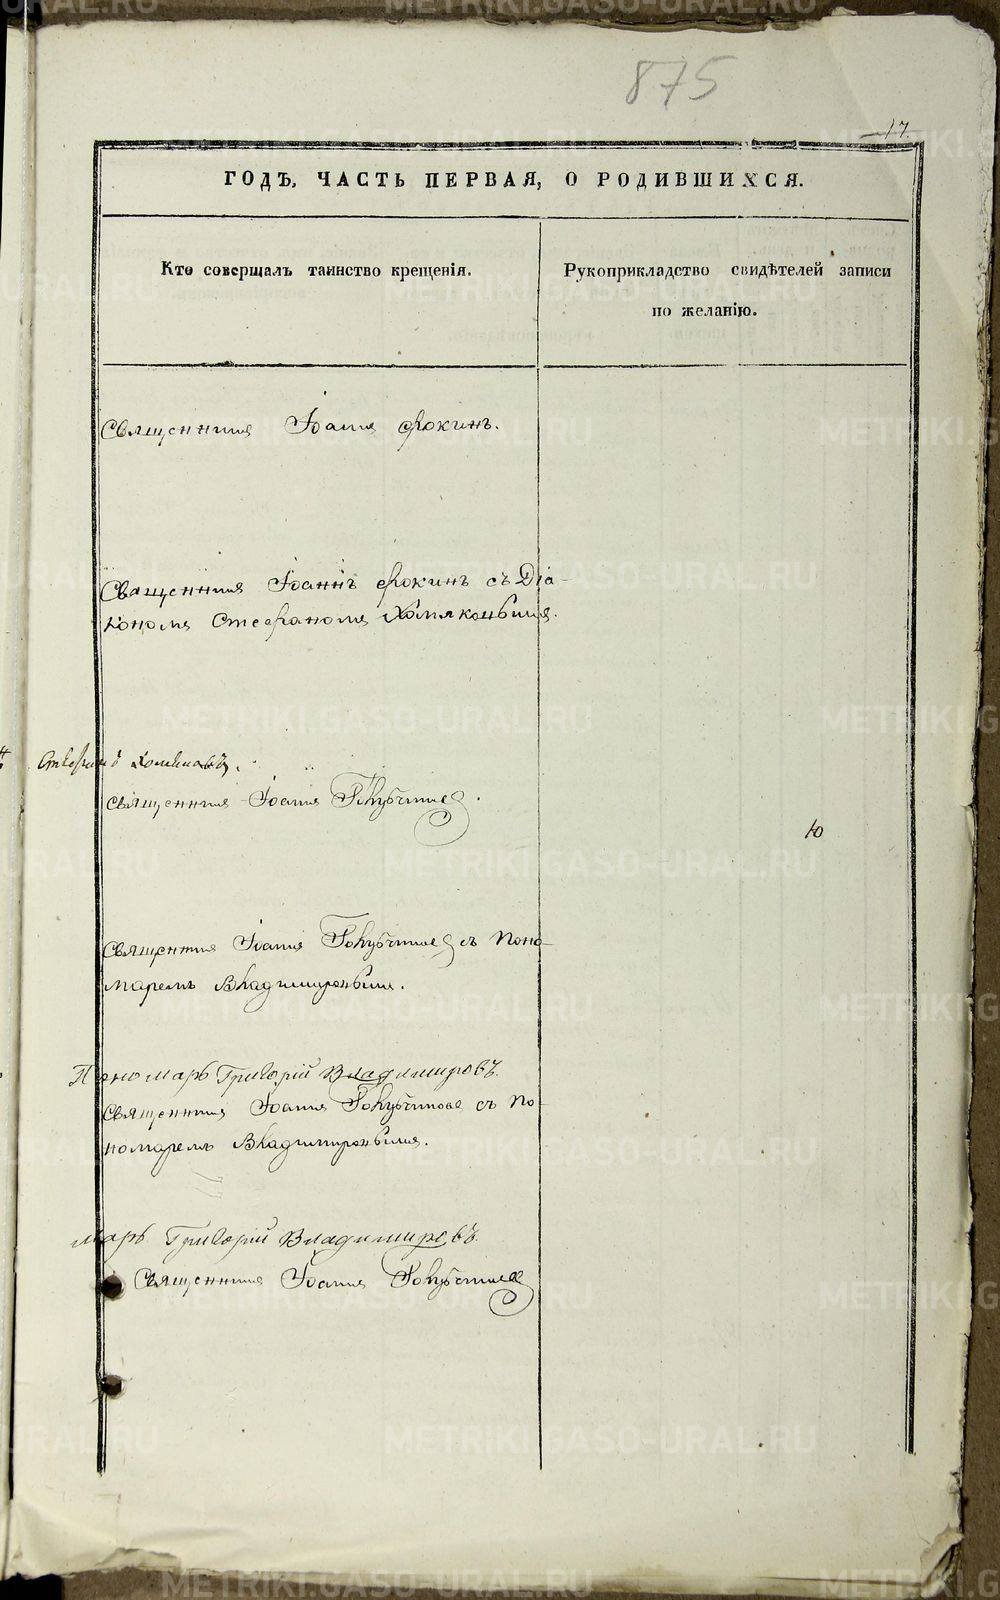 875
17.
ГОДЪ, ЧАСТЬ ПЕРВАЯ, О РОДИВШИХСЯ.
Кто совершалъ таинство крещенія.
Рукоприкладство свидѣтелей записи
по желанію.
Священникъ Іоаннъ Фокинъ.
Священникъ Іоаннъ Фокинъ съ Діа-
кономъ Стефаномъ Хомяковымъ.
Священникъ Іоаннъ
Ю
Священникъ Іоаннъ съ Поно-
маремъ Владимировымъ.
Пономарь Григорій Владимировъ.
Священникъ Іоаннъ съ По-
номаремъ Владимировымъ.
марь Григорій Владимировъ.
Священникъ Іоаннъ
METRIKI.GASO-URAL.RU